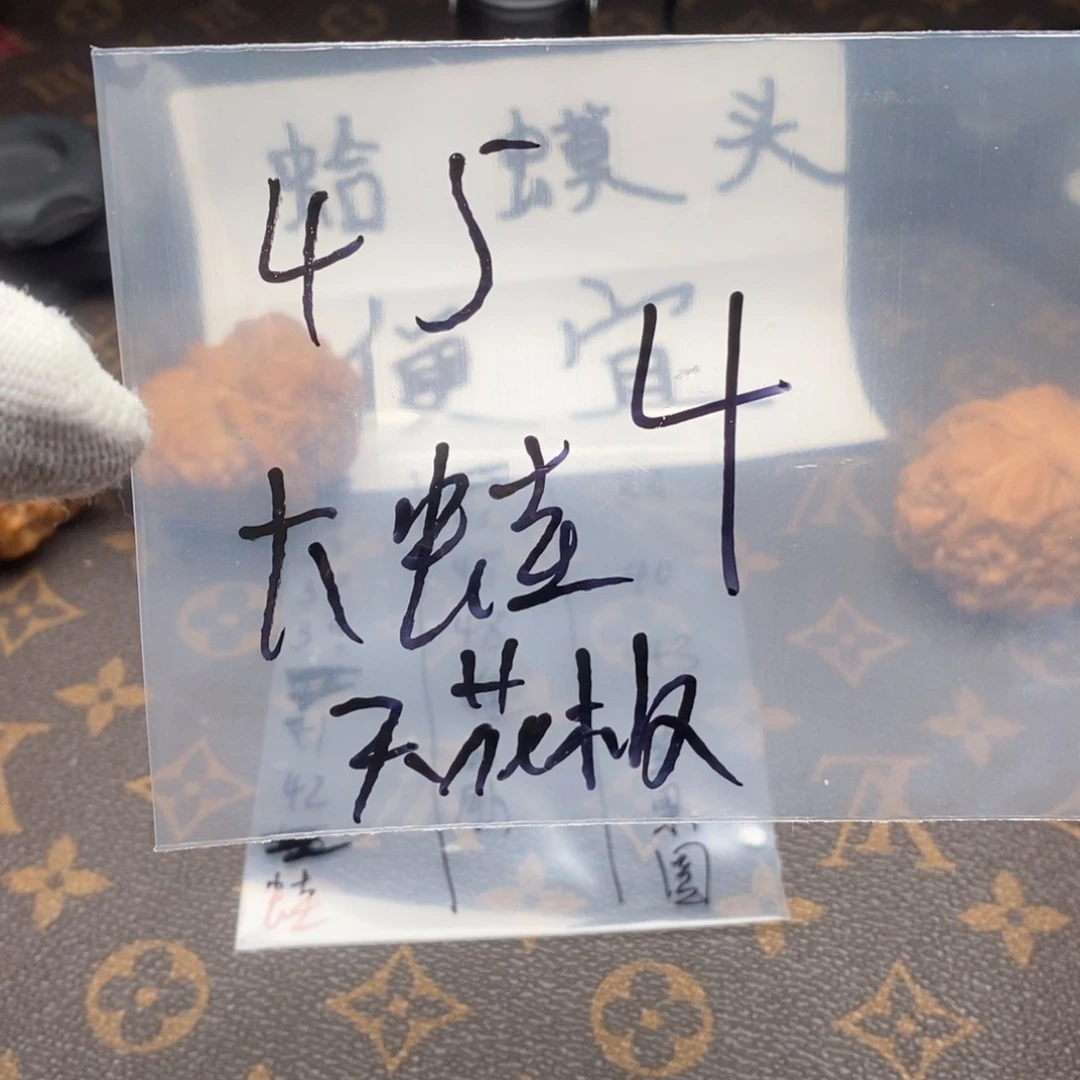 蛤蟆头
便宜
45
4
大蛙
天花板
42
蛙